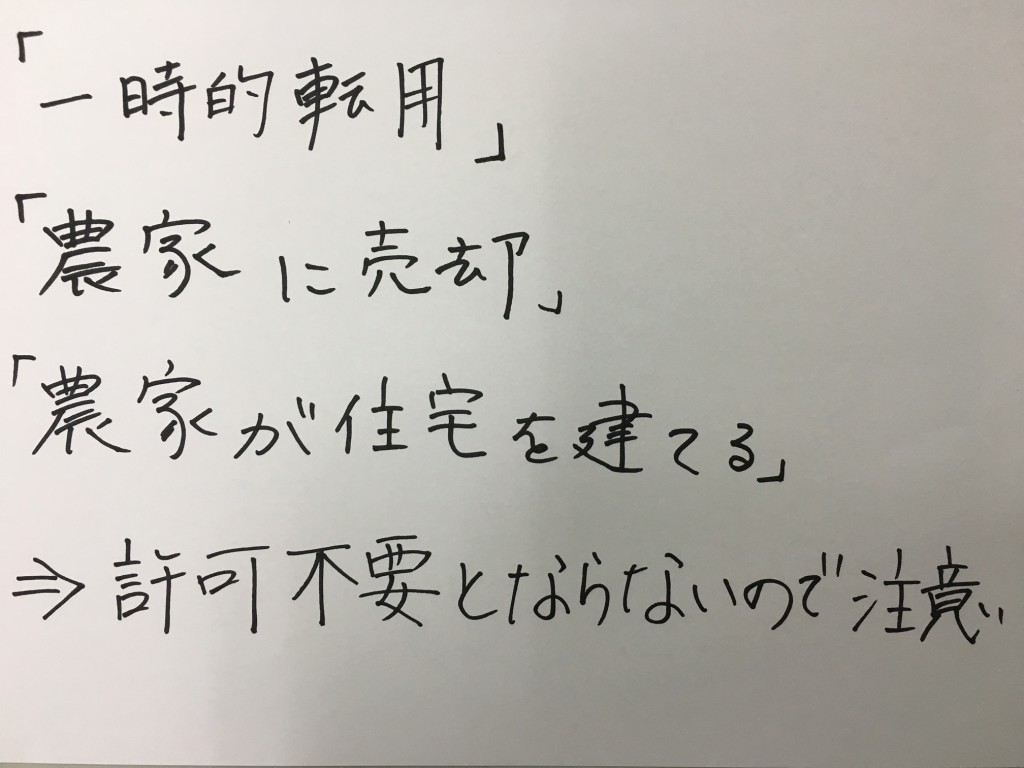 「一時的転用」
「農家に売却」
「農家が住宅を建てる」
⇒許可不要とならないので注意